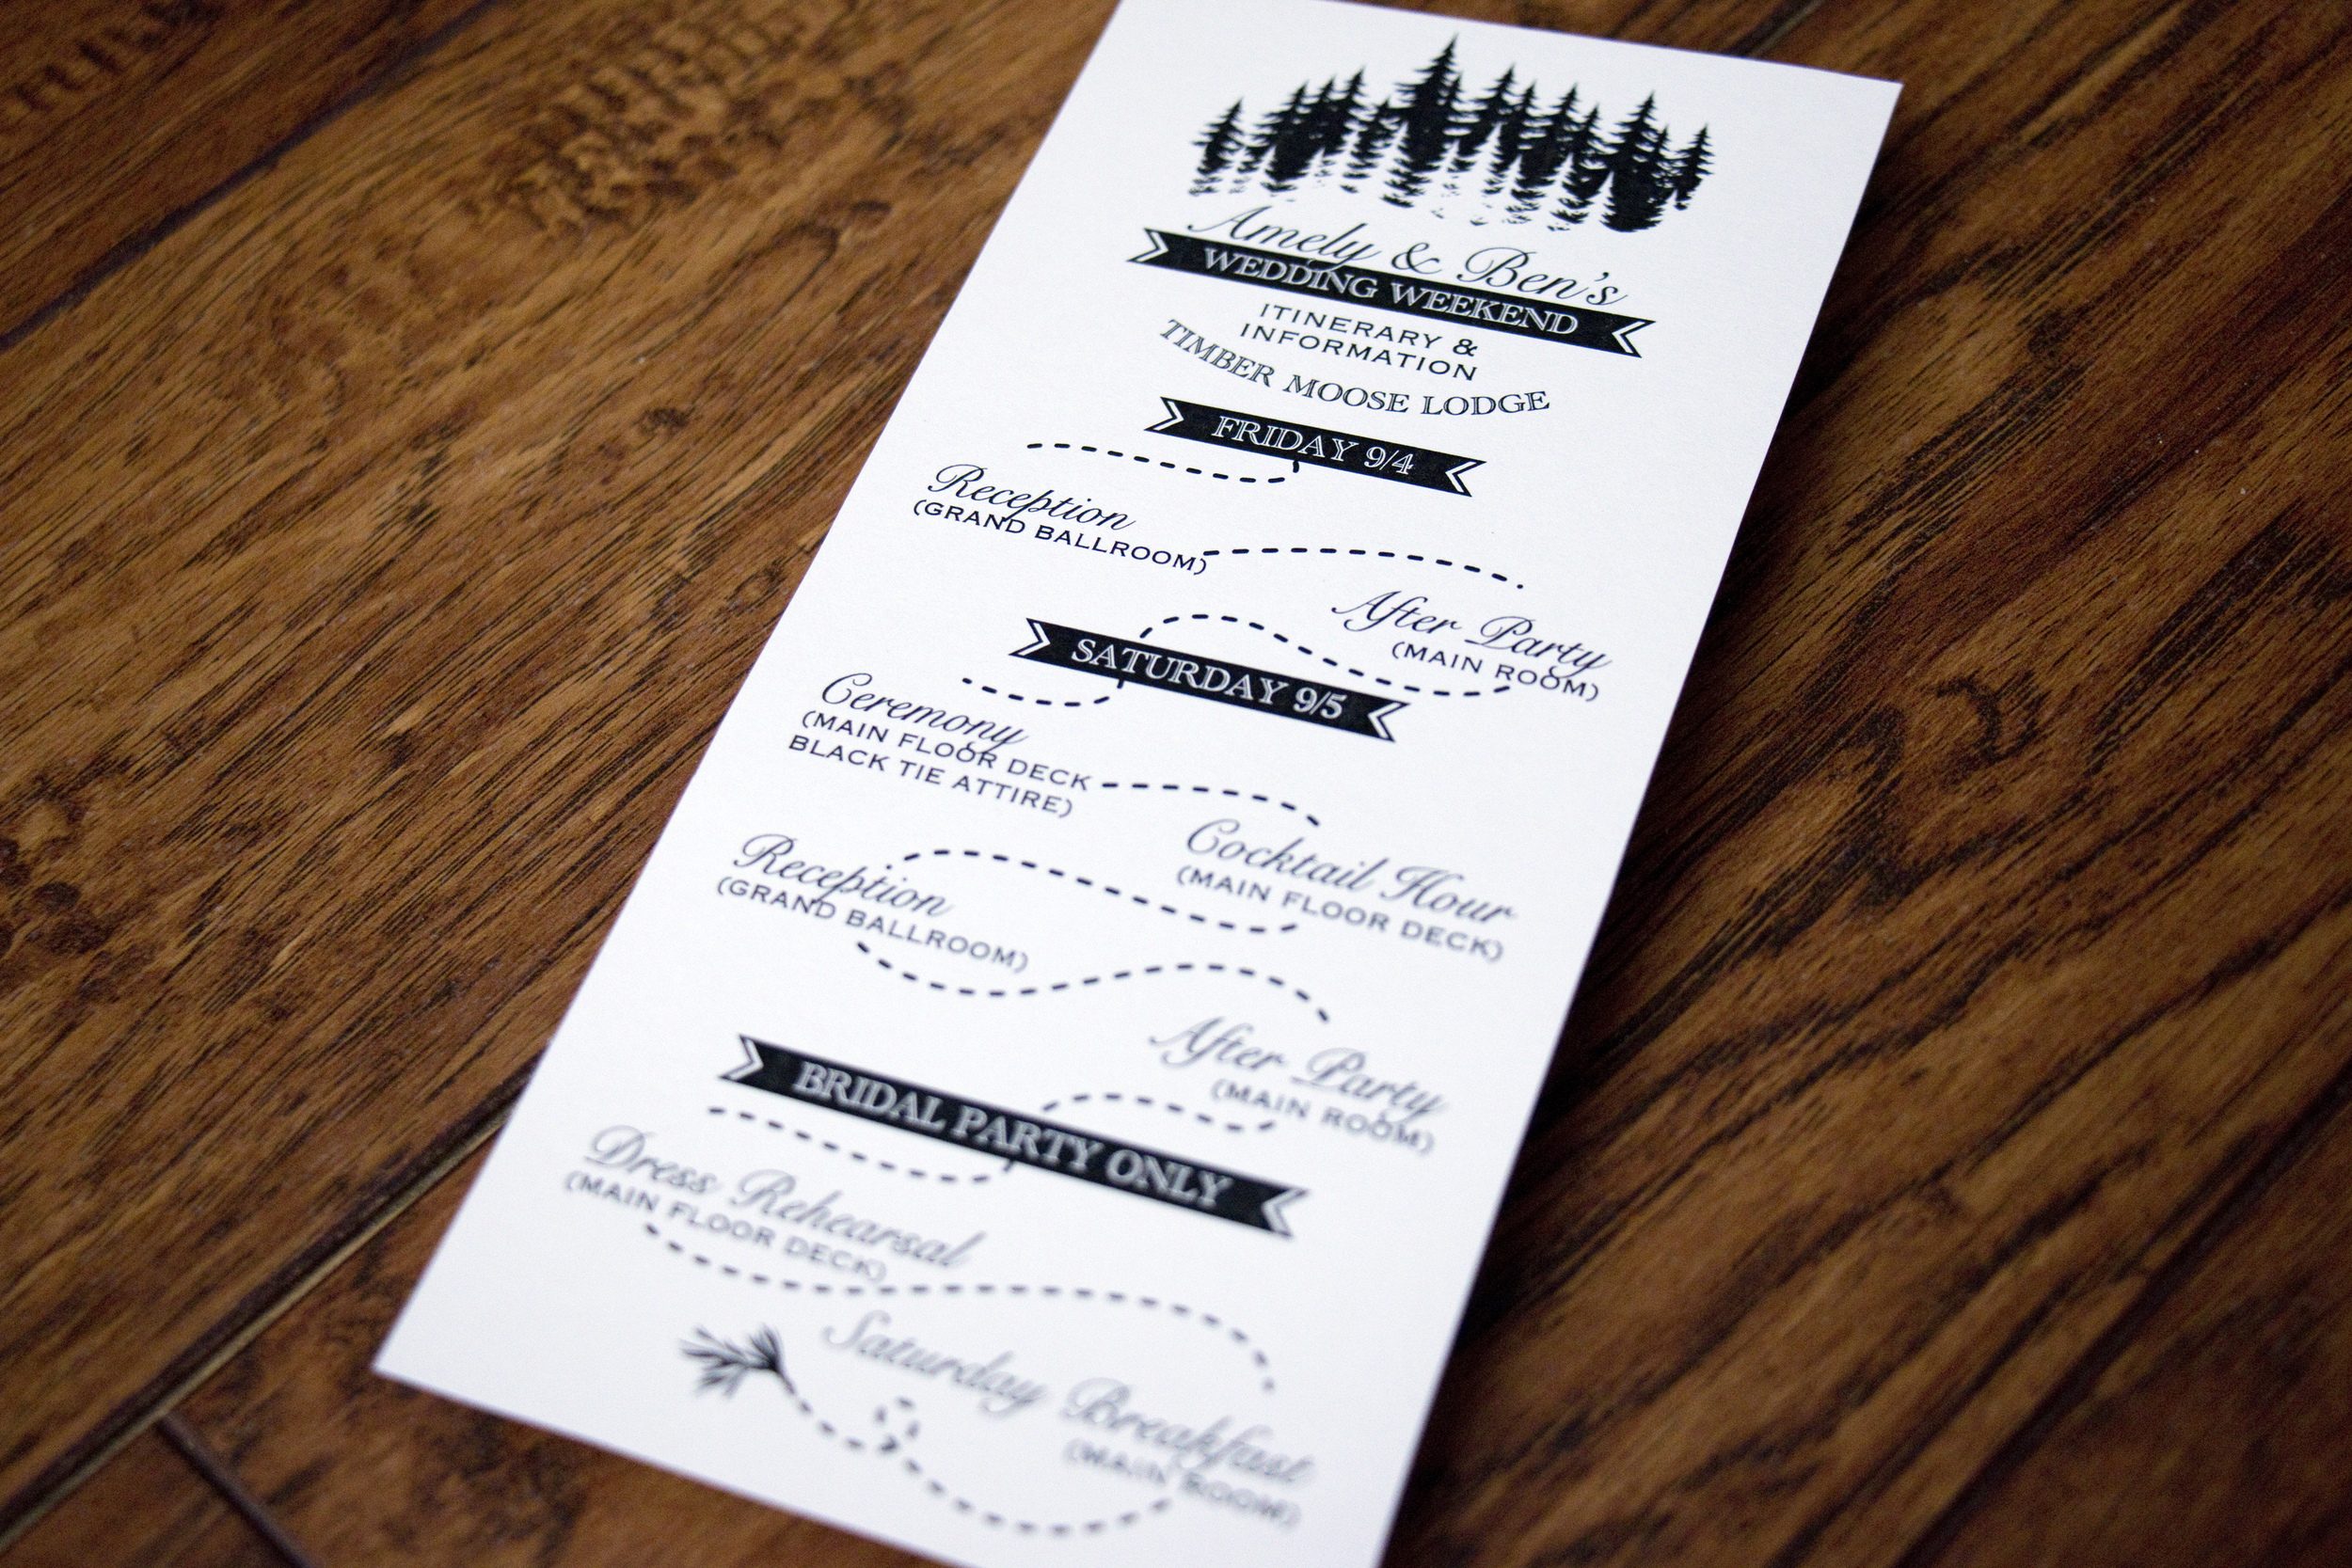 Amely & Ben's
WEDDING WEEKEND
ITINERARY &
INFORMATION
TIMBER MOOSE LODGE
FRIDAY 9/4
Reception
(GRAND BALLROOM)
After Party
(MAIN ROOM)
SATURDAY 9/5
Ceremony
(MAIN FLOOR DECK
BLACK TIE ATTIRE)
Cocktail Hour
(MAIN FLOOR DECK)
Reception
(GRAND BALLROOM)
After Party
(MAIN ROOM)
BRIDAL PARTY ONLY
Dress Rehearsal
(MAIN FLOOR DECK)
Saturday Breakfast
(MAIN ROOM)